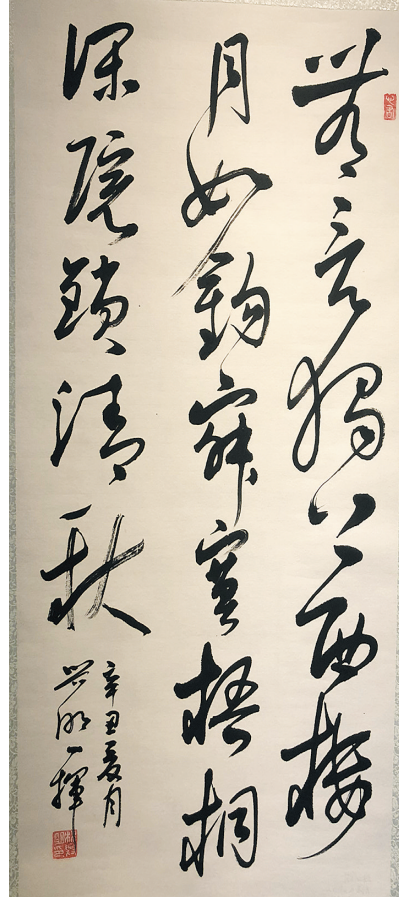 無言獨上西樓
月如鉤寂寞梧桐
深院鎖清秋
辛丑夏月
興明一揮